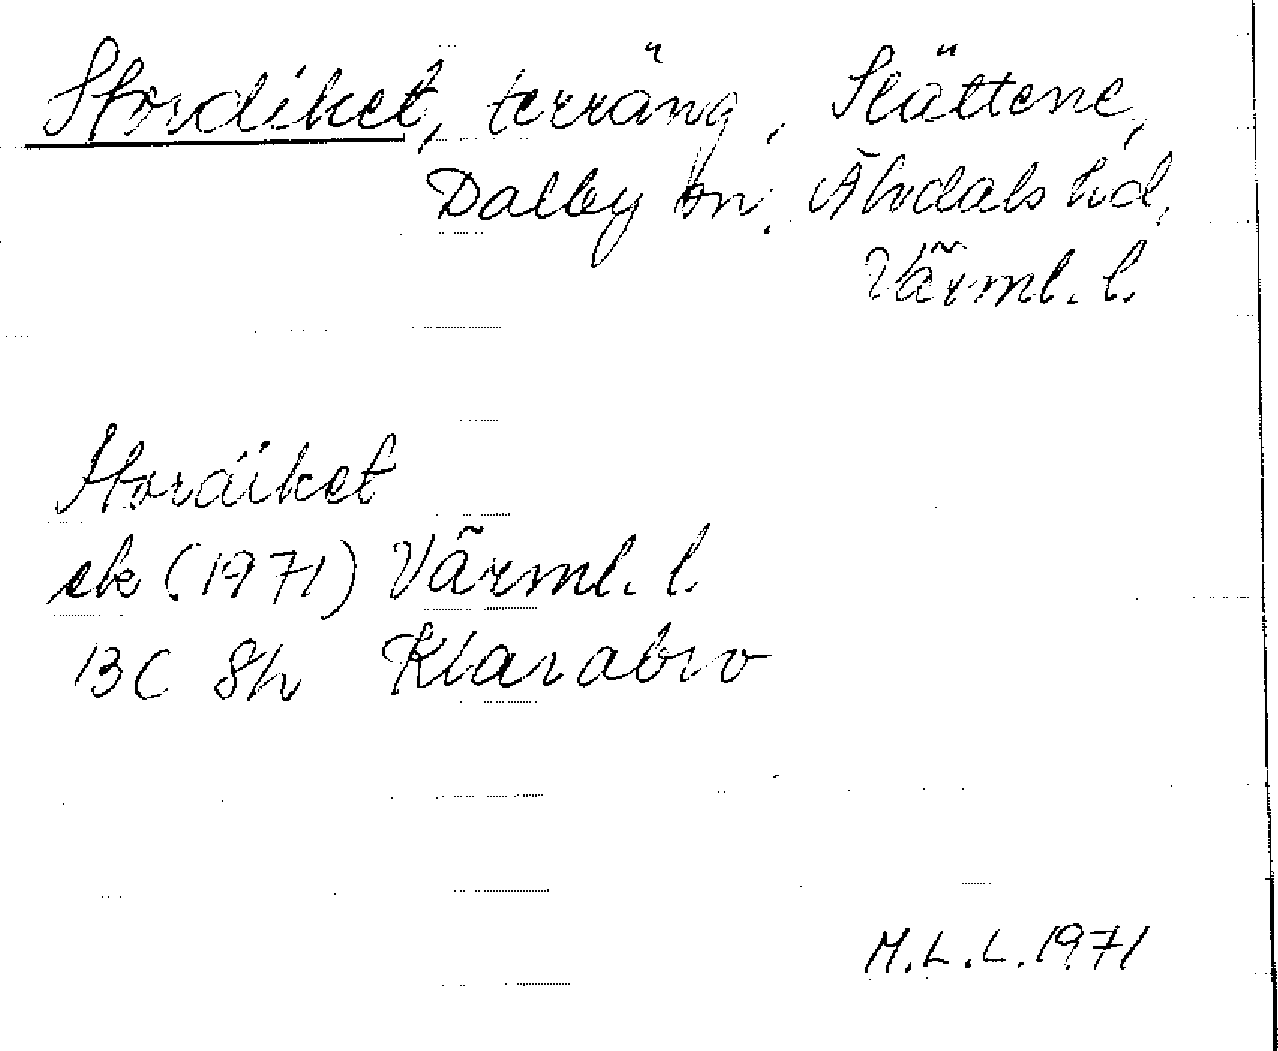 Stordiket, terräng, Slättene,
Dalby sn. Älvdals hd,
Värml. l.
Stordiket
ek (1971) Värml. l.
13C 8h Klarabro
M.L.L. 1971